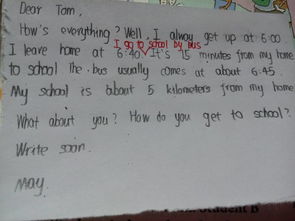 Dear Tom,
How's everything? Well, I alway get up at 6:00
I go to school by bus
I leave home at 6:40. It's 15 minutes from my home
to school The bus usually comes at about 6:45.
My school is about 5 kilometers from my home
What about you? How do you get to school?
Write soon.
May.
Student B